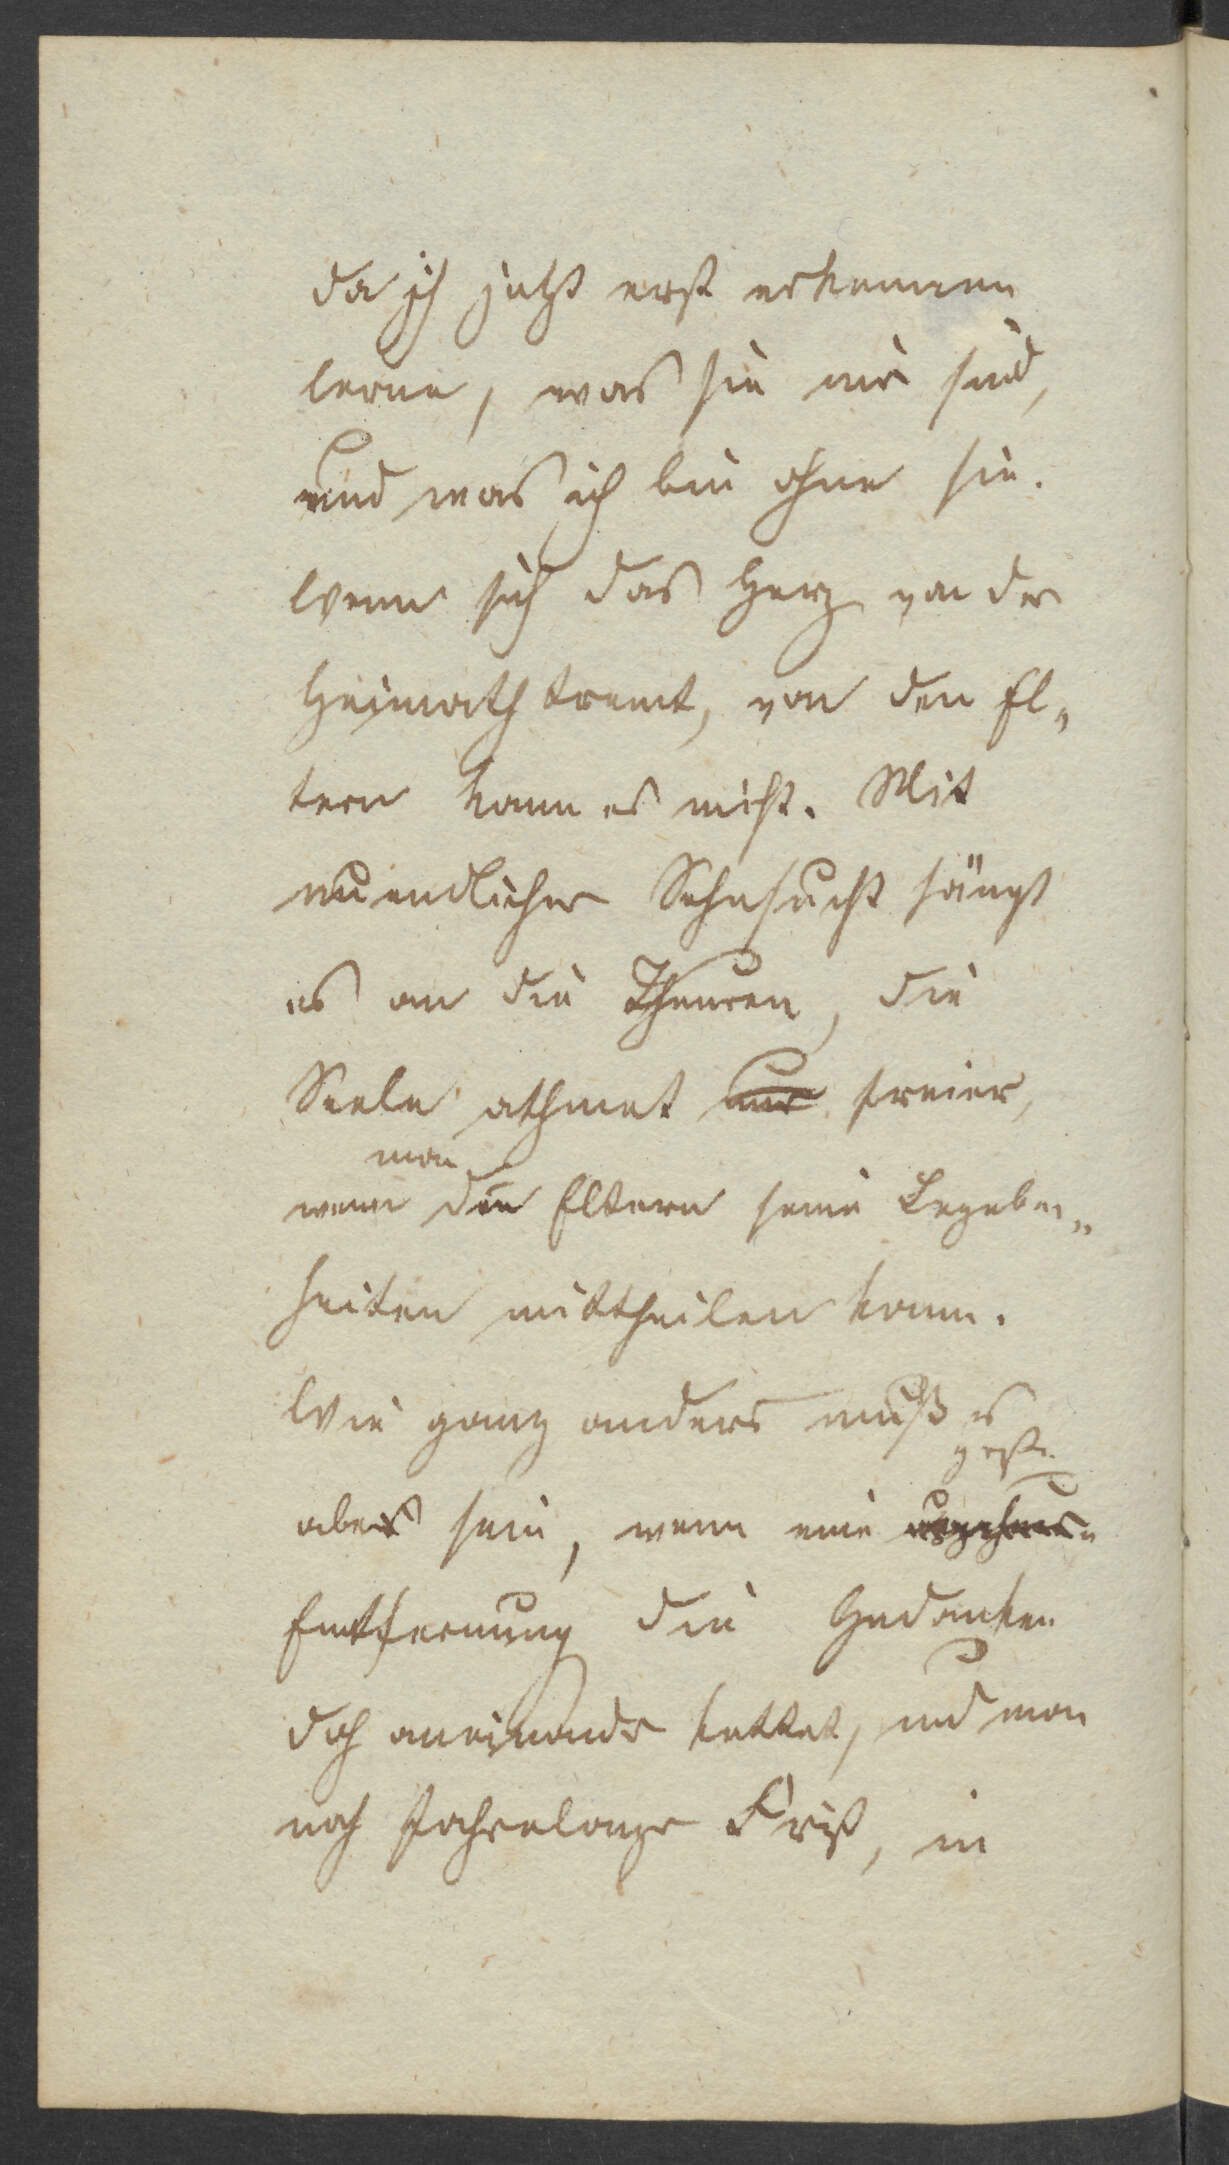 da ich jetzt erst erkennen
lerne, was sie mir sind,
und was ich bin ohne sie.
Wenn sich das Herz von der
Heimath trennt, von den El„
tern kann es nicht. Mit
unendlicher Sehnsucht hängt
es an die Theuren, die
Seele athmet nur freier,
man
wenn den Eltern seine Begeben„
heiten mittheilen kann.
Wie ganz anders muß es
aber sein, wenn eine
Entfernung die Gedanken
doch aneinander kettet, und man
nach Jahrelanger Frist, in